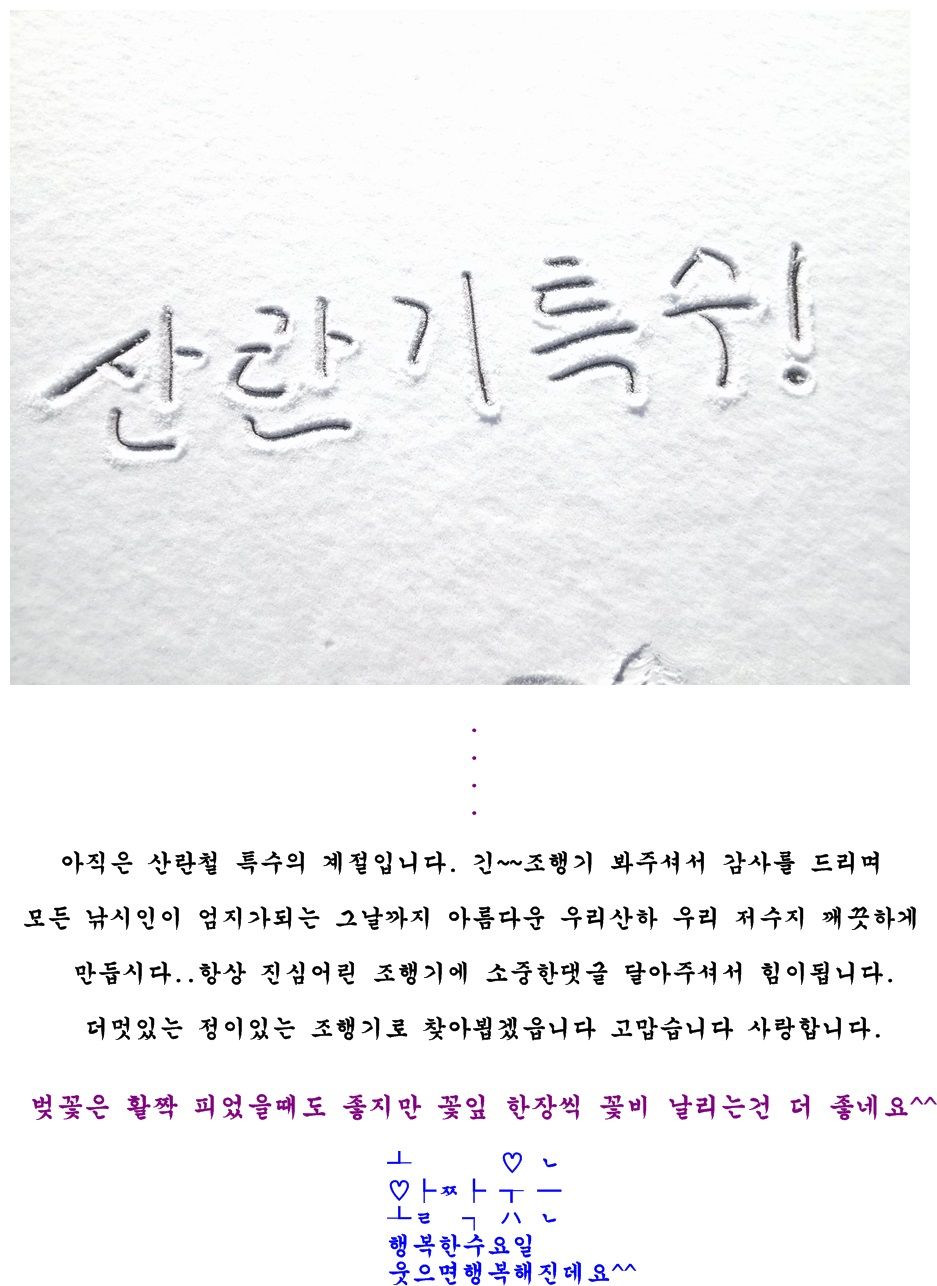 산란기특수!
.
.
.
.
아직은 산란철 특수의 계절입니다. 긴~~조행기 봐주셔서 감사를 드리며
모든 낚시인이 엄지가되는 그날까지 아름다운 우리산하 우리 저수지 깨끗하게
만듭시다..항상 진심어린 조행기에 소중한댓글 달아주셔서 힘이됩니다.
더멋있는 정이있는 조행기로 찾아뵙겠읍니다 고맙습니다 사랑합니다.
벚꽃은 활짝 피었을때도 좋지만 꽃잎 한장씩 꽃비 날리는건 더 좋네요^^
ㅗ ♡ ㄴ
♡ㅏㅉㅏㅜㅡ
ㅗㄹ ㄱ ㅅ ㄴ
행복한수요일
웃으면행복해진데요^^